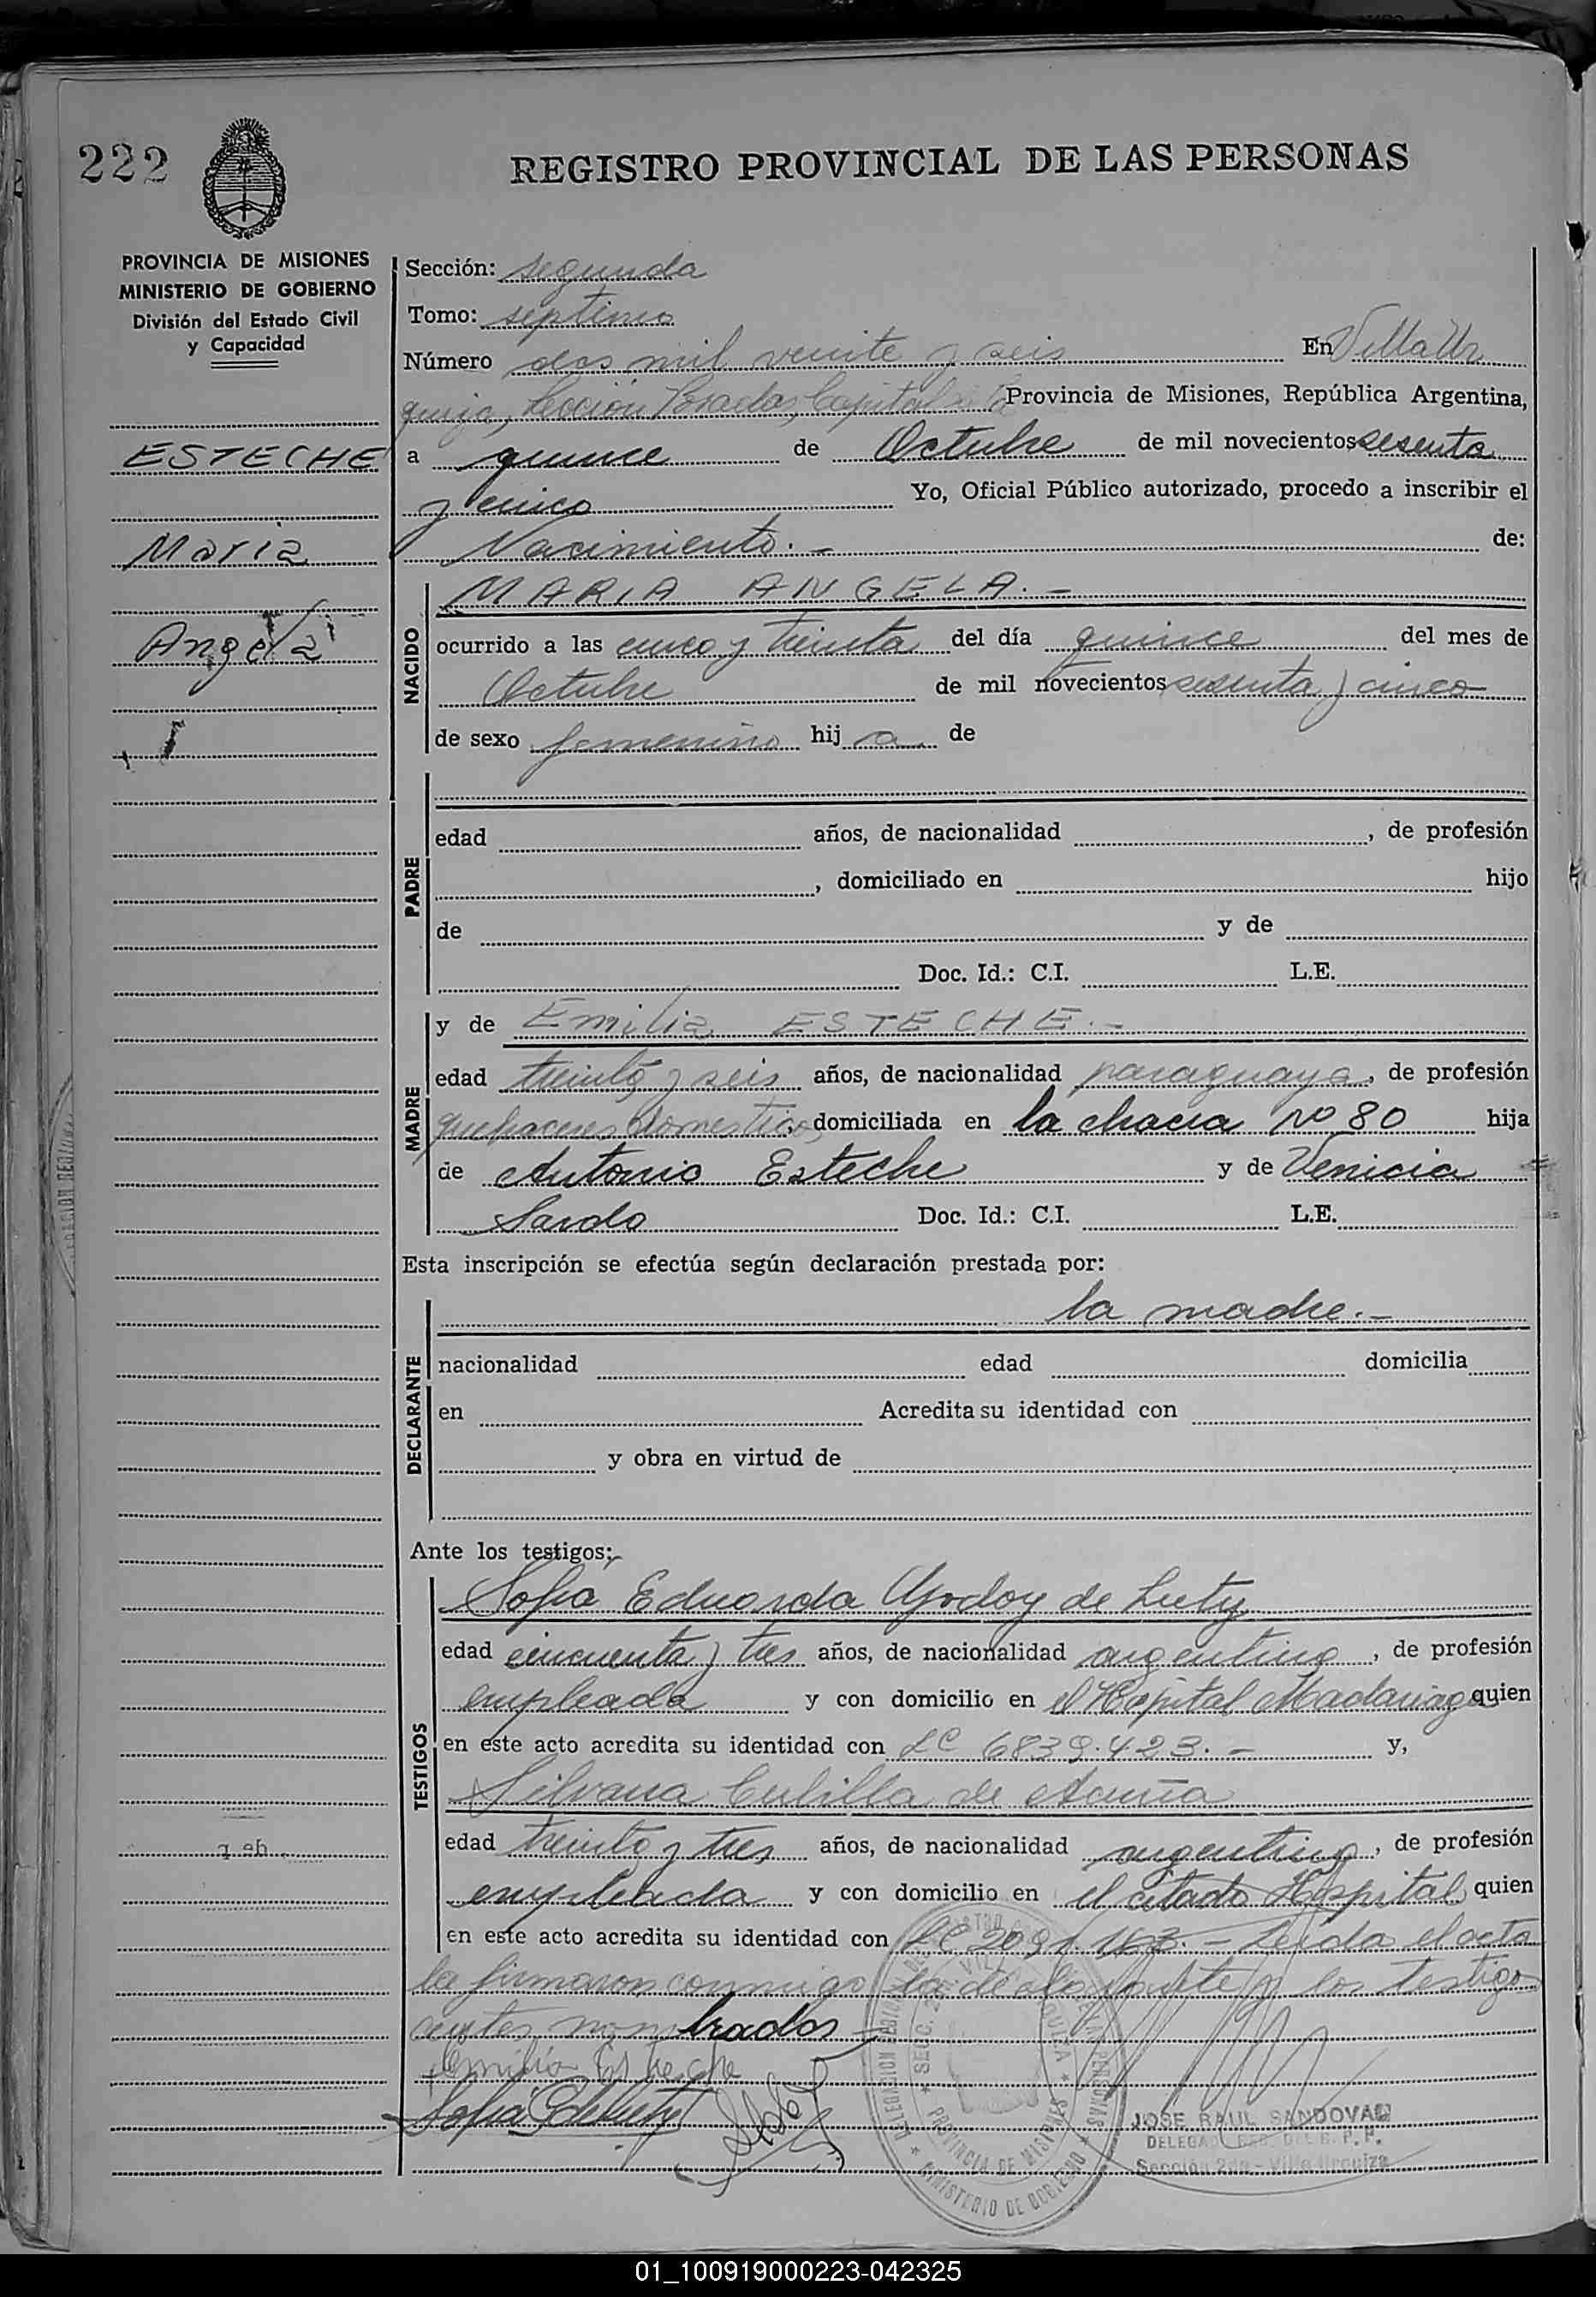 222
REGISTRO PROVINCIAL DE LAS PERSONAS
PROVINCIA DE MISIONES
MINISTERIO DE GOBIERNO
División del Estado Civil
y Capacidad
ESTECHE
Maria
Angela
Sección: segunda
Tomo: septimo
Número dos mil veinte y seis En Villa Ur
quiza, Sección Posadas, Capital de la Provincia de Misiones, República Argentina,
a quince de Octubre de mil novecientos sesenta
y cinco Yo, Oficial Público autorizado, procedo a inscribir el
Nacimiento.- de:
NACIDO
MARIA ANGELA.-
ocurrido a las cinco y treinta del día quince del mes de
Octubre de mil novecientos sesenta y cinco
de sexo femenino hij a de
PADRE
edad años, de nacionalidad , de profesión
, domiciliado en hijo
de y de
Doc. Id.: C.I. L.E.
MADRE
y de Emilia ESTECHE.-
edad treinta y seis años, de nacionalidad paraguaya, de profesión
quehaceres domesticos, domiciliada en la chacra Nº 80 hija
de Antonio Esteche y de Venicia
Sardo Doc. Id.: C.I. L.E.
Esta inscripción se efectúa según declaración prestada por:
DECLARANTE
la madre.-
nacionalidad edad domicilia
en Acredita su identidad con
y obra en virtud de
Ante los testigos:
TESTIGOS
Sofia Eduarda Godoy de Luty
edad cincuenta y tres años, de nacionalidad argentina, de profesión
empleada y con domicilio en el Hospital Madariaga quien
en este acto acredita su identidad con LC 6839.423.- y,
Silvana Cubilla de Acuña
edad treinta y tres años, de nacionalidad argentina, de profesión
empleada y con domicilio en el citado Hospital quien
en este acto acredita su identidad con LC 2091.163.- Leida el acta
la firmaron conmigo la declarante y los testigos
antes nombrados
Emilia Esteche
JOSE RAUL SANDOVAL
Sección 2da - Villa Urquiza
PROVINCIA DE MISIONES
MINISTERIO DE GOBIERNO
01_100919000223-042325